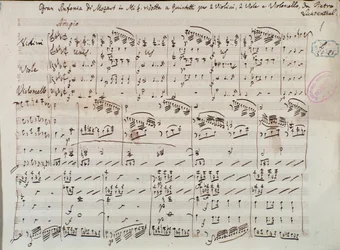 Gran Sinfonia di Mozart in Mi b. ridotta a Quintetto per 2 Violini, 2 Viole e Violoncello, Da Pietro
Lichtenthal.
Adagio
Violini
Viole
Violoncello